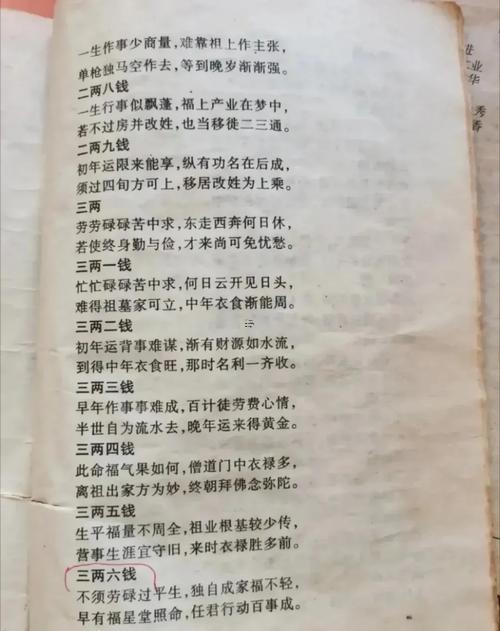 一生作事少商量，难靠祖上作主张，
单枪独马空作去，等到晚岁渐渐强。
二两八钱
一生行事似飘蓬，福上产业在梦中，
若不过房并改姓，也当移徙二三通。
二两九钱
初年运限来能享，纵有功名在后成，
须过四旬方可上，移居改姓为上乘。
三两
劳劳碌碌苦中求，东走西奔何日休，
若使终身勤与俭，才来尚可免忧愁。
三两一钱
忙忙碌碌苦中求，何日云开见日头，
难得祖墓家可立，中年衣食渐能周。
三两二钱
初年运背事难谋，渐有财源如水流，
到得中年衣食旺，那时名利一齐收。
三两三钱
早年作事事难成，百计徒劳费心情，
半世自为流水去，晚年运来得黄金。
三两四钱
此命福气果如何，僧道门中衣禄多，
离祖出家方为妙，终朝拜佛念弥陀。
三两五钱
生平福量不周全，祖业根基较少传，
营事生涯宜守旧，来时衣禄胜多前。
三两六钱
不须劳碌过平生，独自成家福不轻，
早有福星堂照命，任君行动百事成。
业
华
秀
香